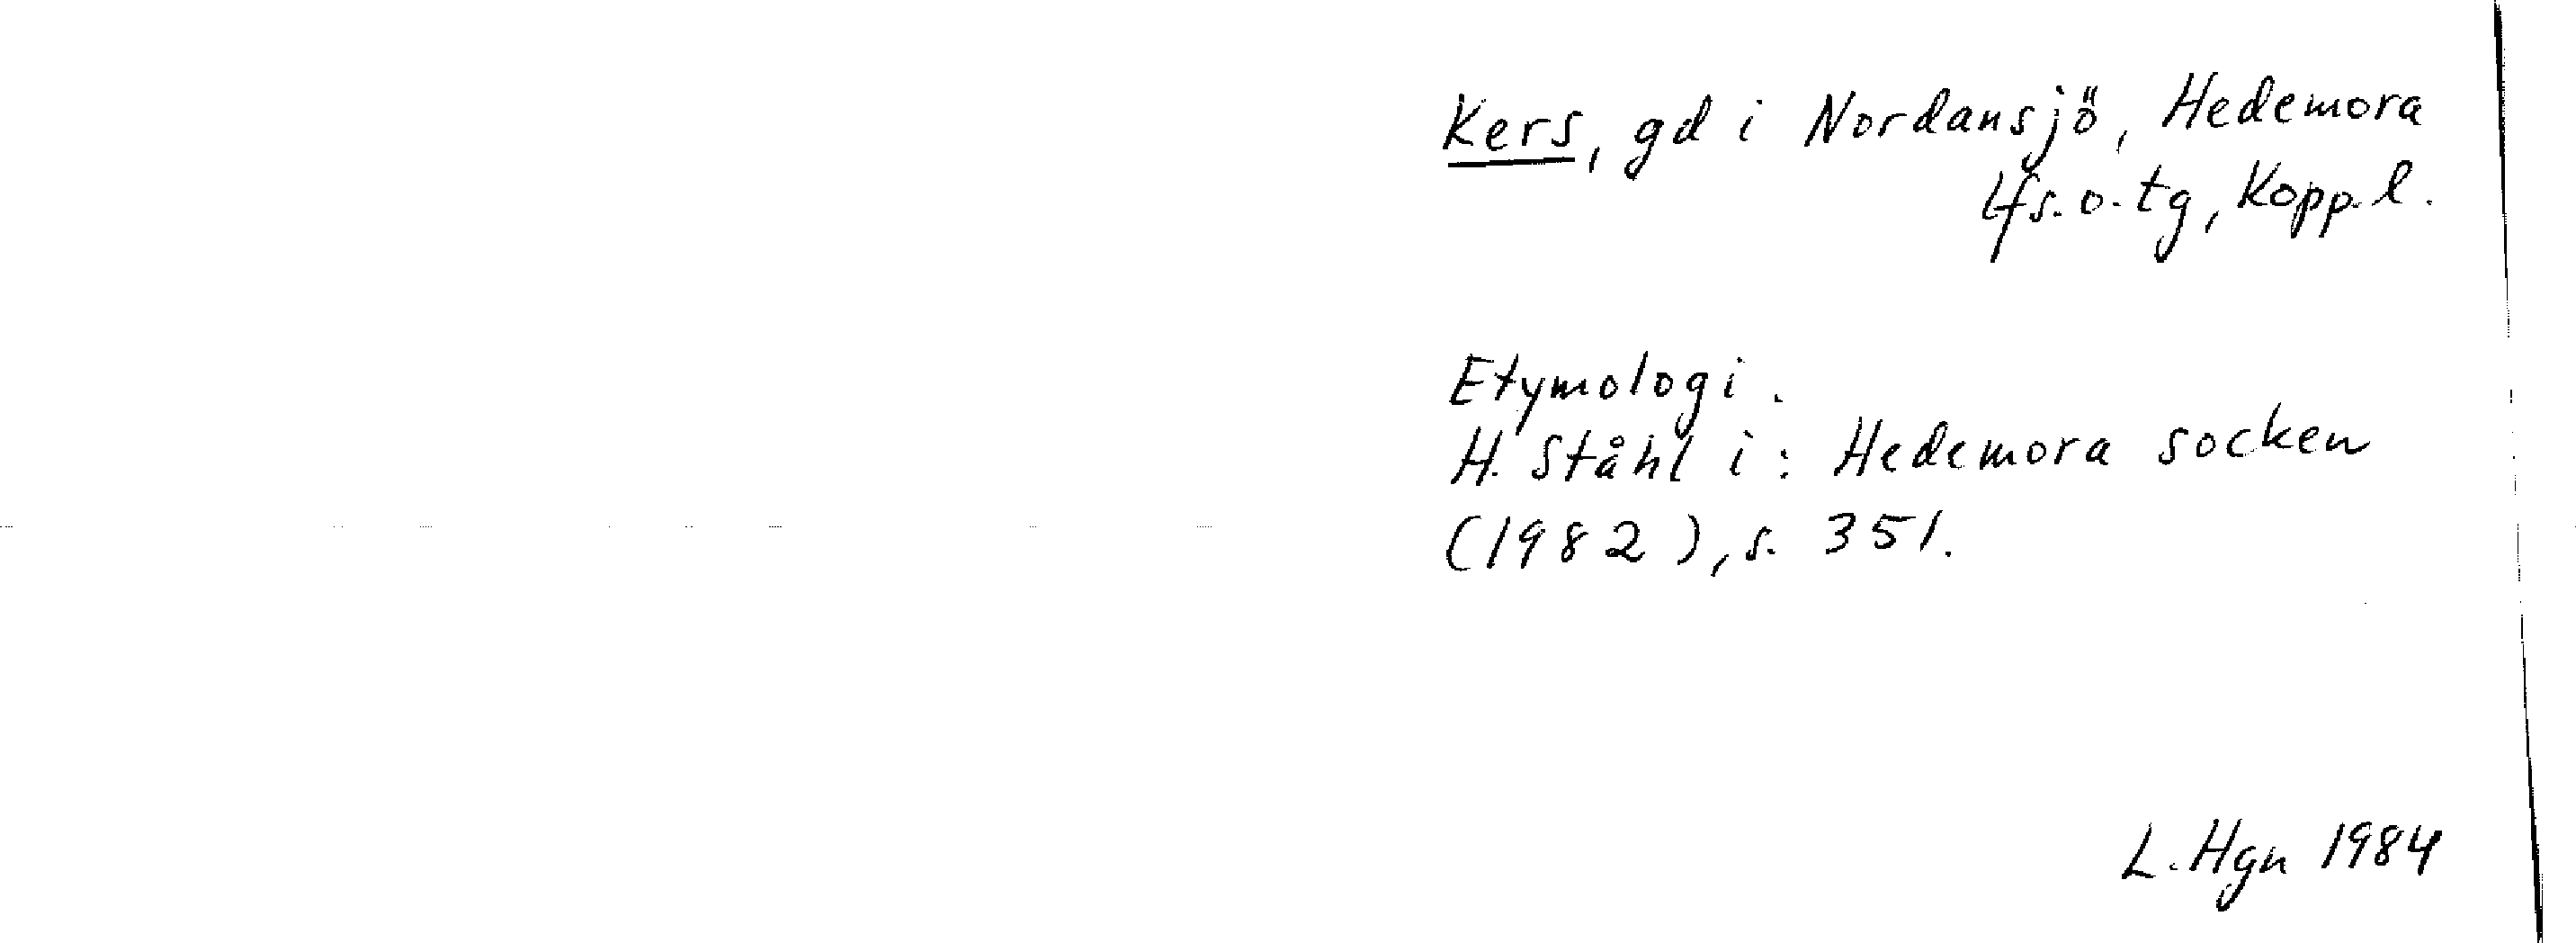 Kers, gd i Nordansjö, Hedemora
lfs. o. tg, Kopp. l.
Etymologi.
H. Ståhl i: Hedemora socken
(1982), s. 351.
L. Hgn 1984